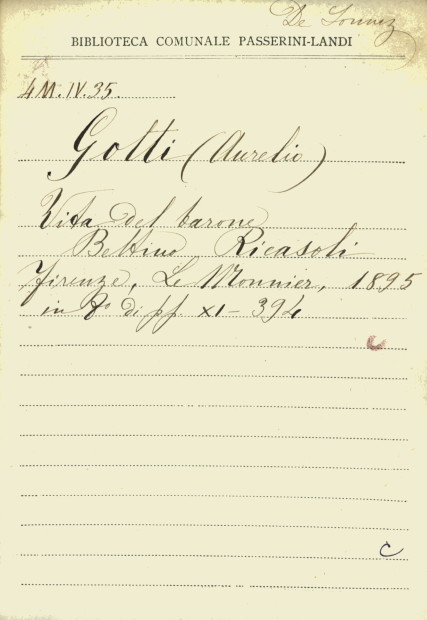 De
BIBLIOTECA COMUNALE PASSERINI-LANDI
4M.IV.35.
Gotti (Aurelio)
Vita del barone
Bettino Ricasoli
Firenze, Le Monnier, 1895
in 8º di pp. XI-394
C